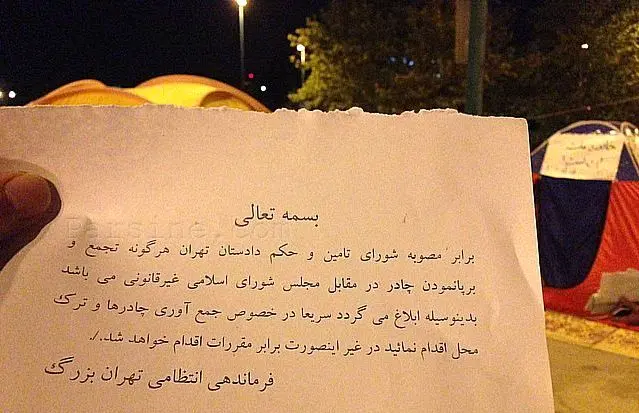 بسمه تعالی
برابر مصوبه شورای تامین و حکم دادستان تهران هرگونه تجمع و
برپانمودن چادر در مقابل مجلس شورای اسلامی غیرقانونی می باشد
بدینوسیله ابلاغ می گردد سریعا در خصوص جمع آوری چادرها و ترك
محل اقدام نمائید در غیر اینصورت برابر مقررات اقدام خواهد شد./.
فرماندهی انتظامی تهران بزرگ
Parsine.com